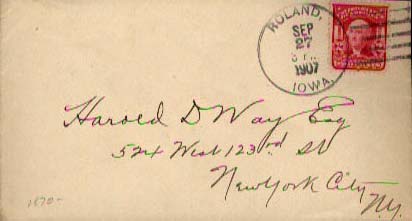 ROLAND,
SEP
27
1907
IOWA.
Harold D Way Esq
524 West 123rd St
New York City
N.Y.
1870-